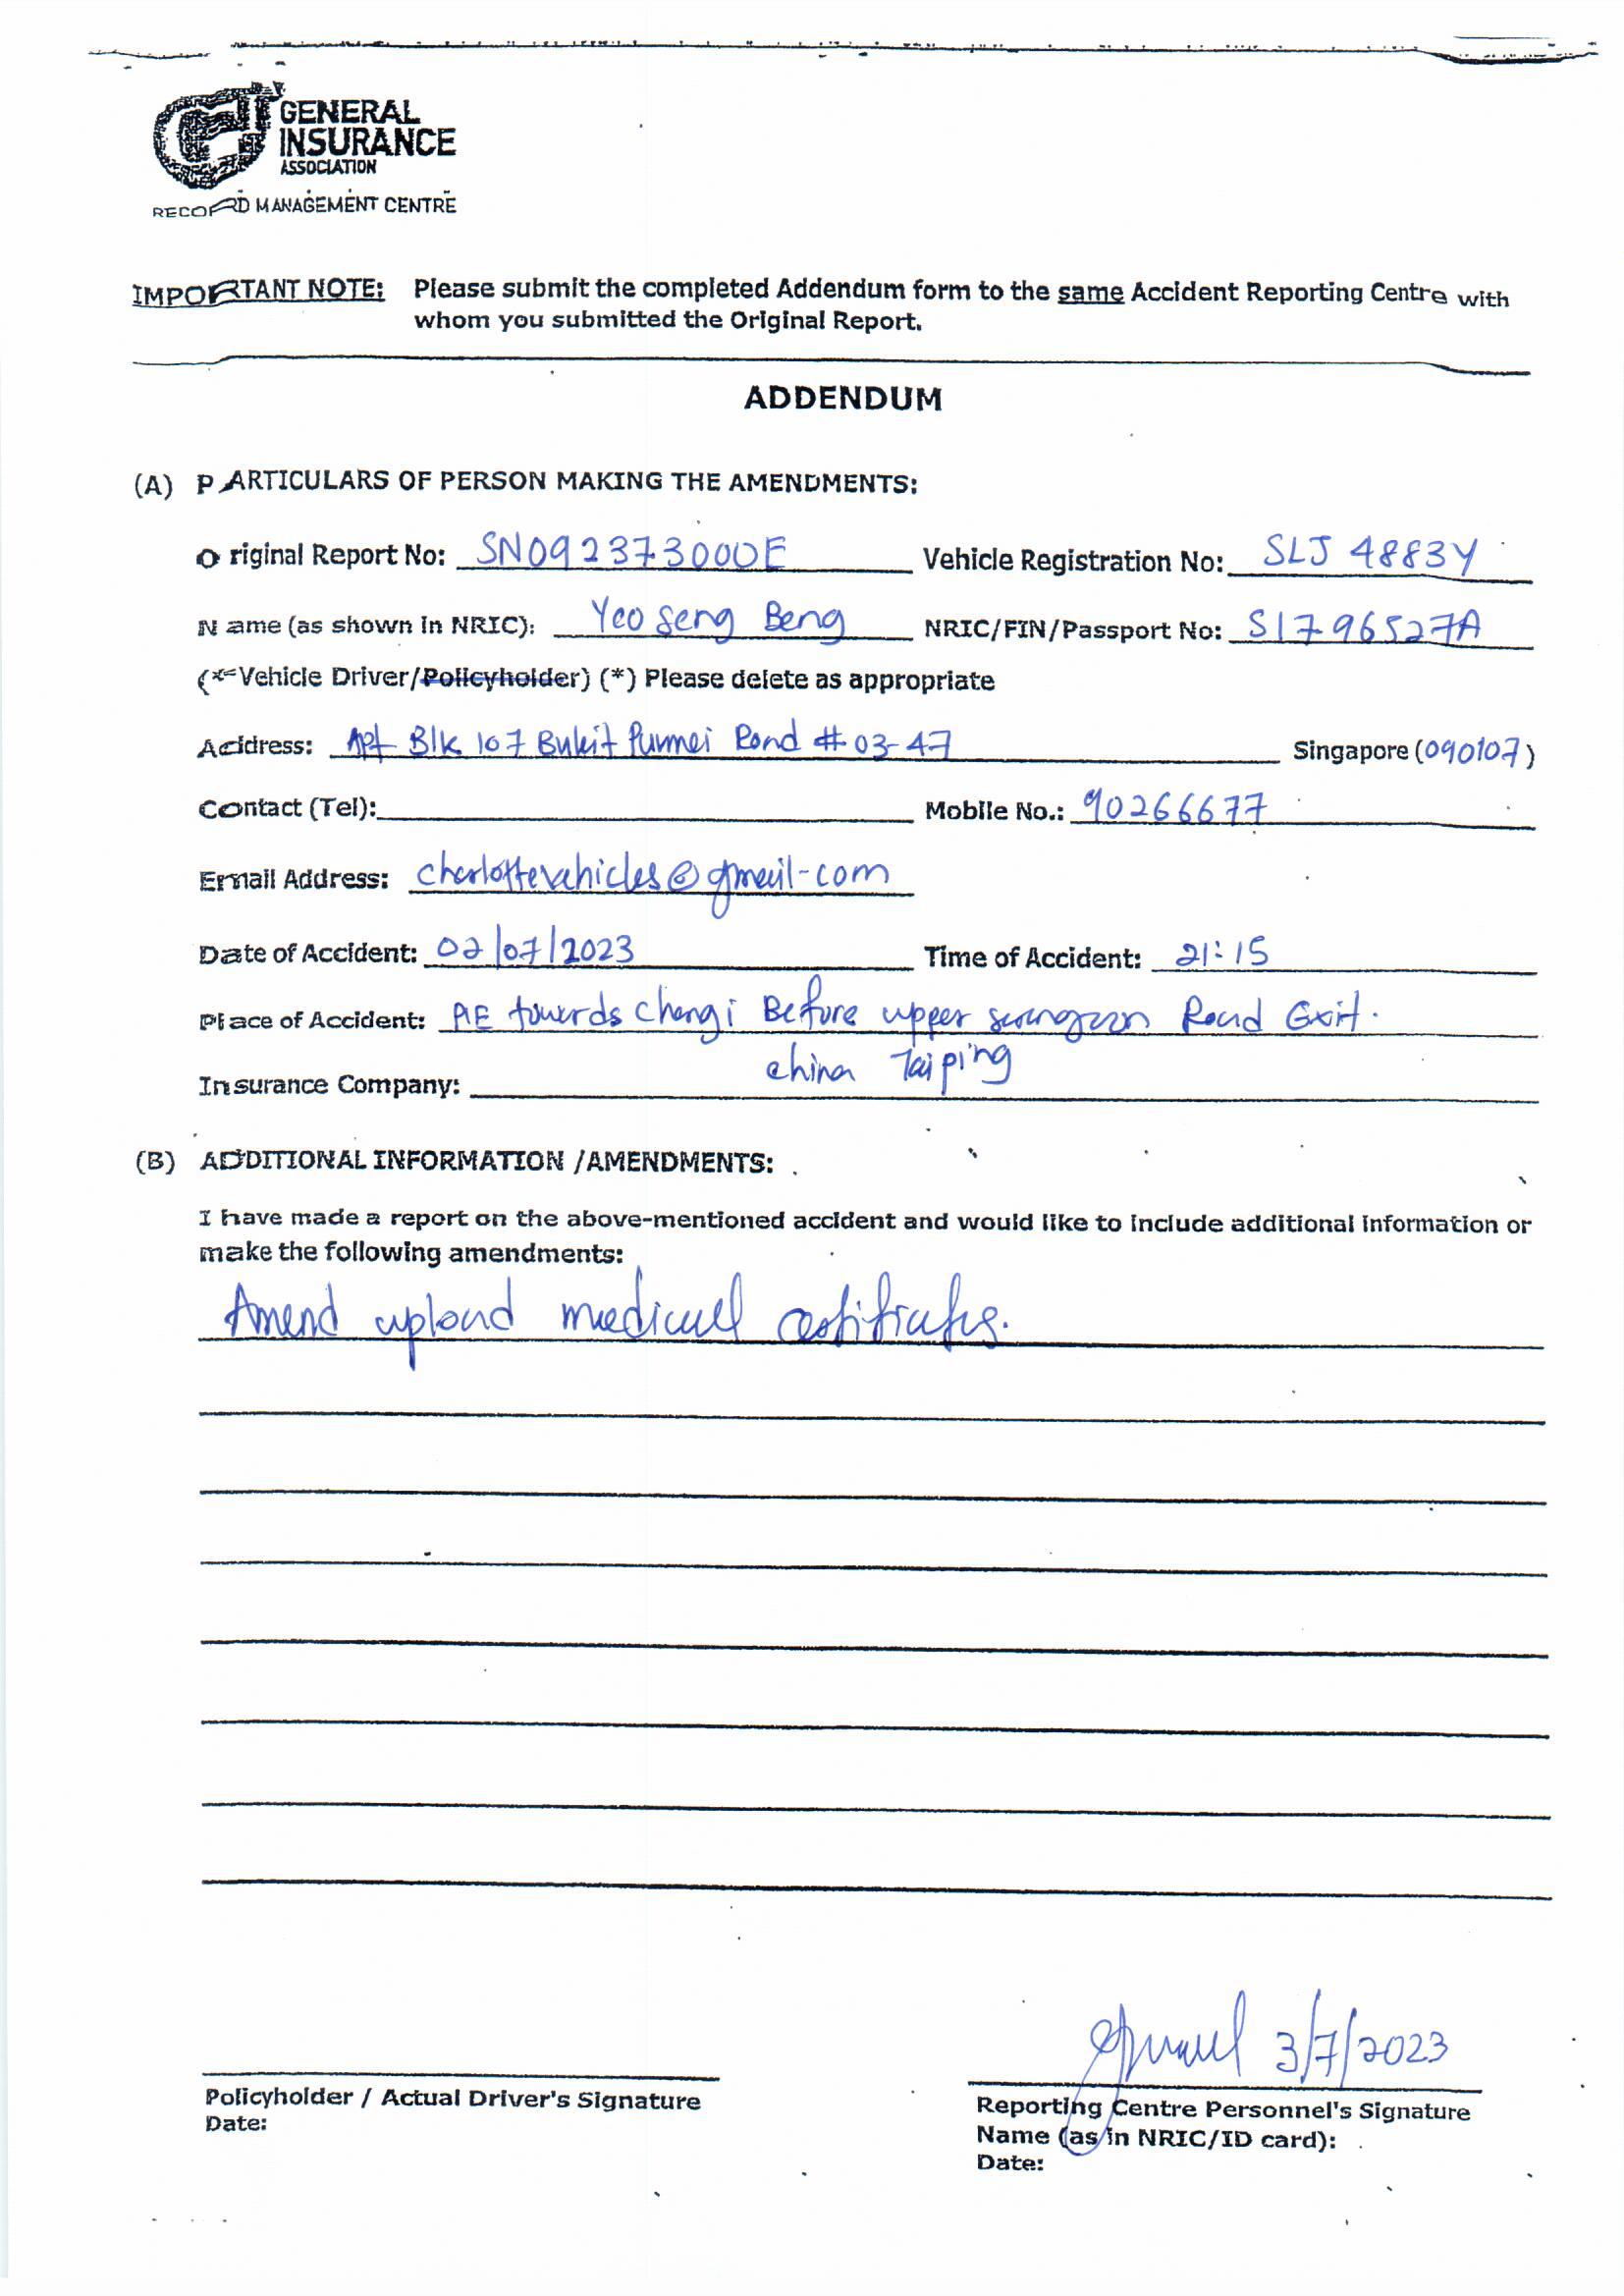 GENERAL
INSURANCE
ASSOCIATION
RECORD MANAGEMENT CENTRE
IMPORTANT NOTE: Please submit the completed Addendum form to the same Accident Reporting Centre with
whom you submitted the Original Report.
ADDENDUM
(A) PARTICULARS OF PERSON MAKING THE AMENDMENTS:
Original Report No: SN092373000E Vehicle Registration No: SLJ 4883Y
Name (as shown in NRIC): Yeo Seng Beng NRIC/FIN/Passport No: S1796527A
(*Vehicle Driver/Policyholder) (*) Please delete as appropriate
Address: Apt Blk 107 Bukit Purmei Road #03-47 Singapore (090107)
Contact (Tel): Mobile No.: 90266677
Email Address: charlottevehicles@gmail-com
Date of Accident: 02/07/2023 Time of Accident: 21:15
Place of Accident: PIE towards Changi Before upper serangoon Road Exit.
Insurance Company: China Taiping
(B) ADDITIONAL INFORMATION /AMENDMENTS:
I have made a report on the above-mentioned accident and would like to include additional information or
make the following amendments:
Amend upload medical certificates.
3/7/2023
Policyholder / Actual Driver's Signature
Date:
Reporting Centre Personnel's Signature
Name (as in NRIC/ID card):
Date: